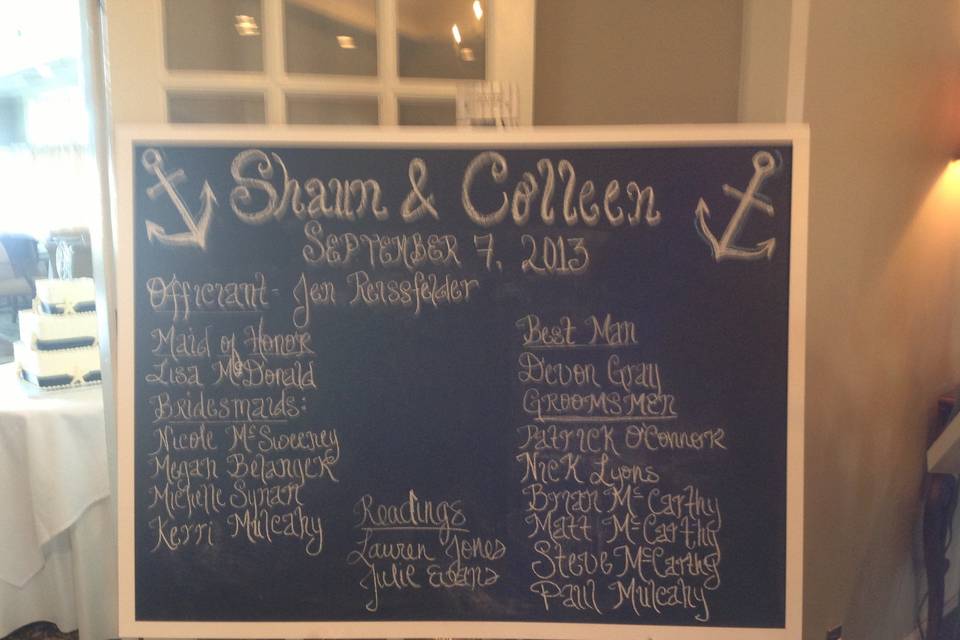 Shaun & Colleen
SEPTEMBER 7, 2013
Officiant- Jen Reissfelder
Maid of Honor
Lisa McDonald
Bridesmaids:
Nicole McSweeney
Megan Belanger
Michelle Synan
Kerri Mulcahy
Readings
Lauren Jones
Julie Evans
Best Man
Devon Gray
GROOMSMEN
Patrick O'Connor
Nick Lyons
Brian McCarthy
Matt McCarthy
Steve McCarthy
Paul Mulcahy